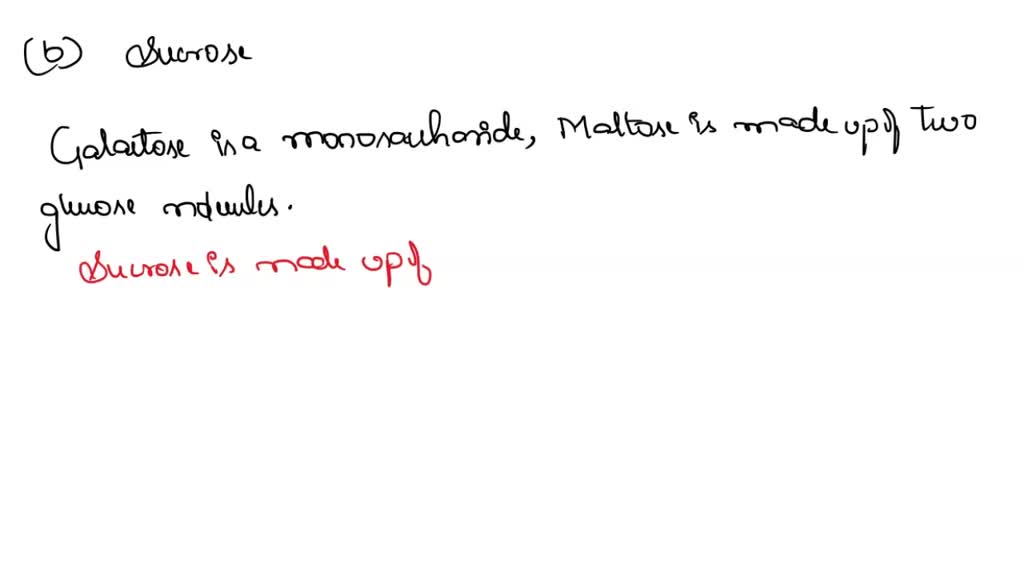 (b) Sucrose
Galactose is a monosaccharide, Maltose is made up of Two
glucose molecules.
Sucrose is made up of